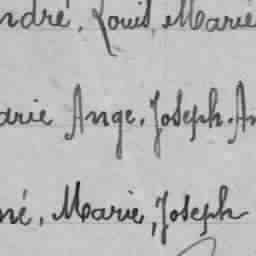 ndré, Louis, Marie
arie Ange, Joseph. An
né, Marie, Joseph